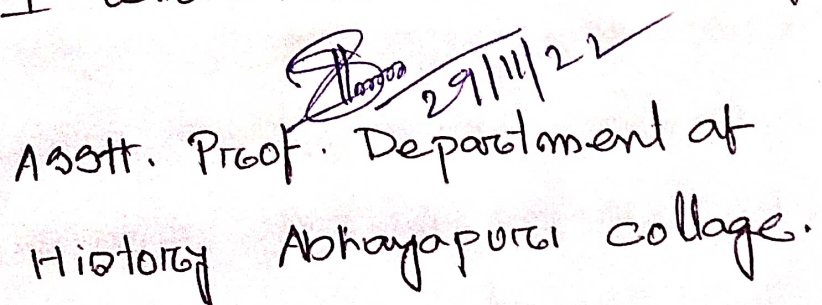 I
29/11/22
Asstt. Proof. Department of
History Abhayapuri collage.